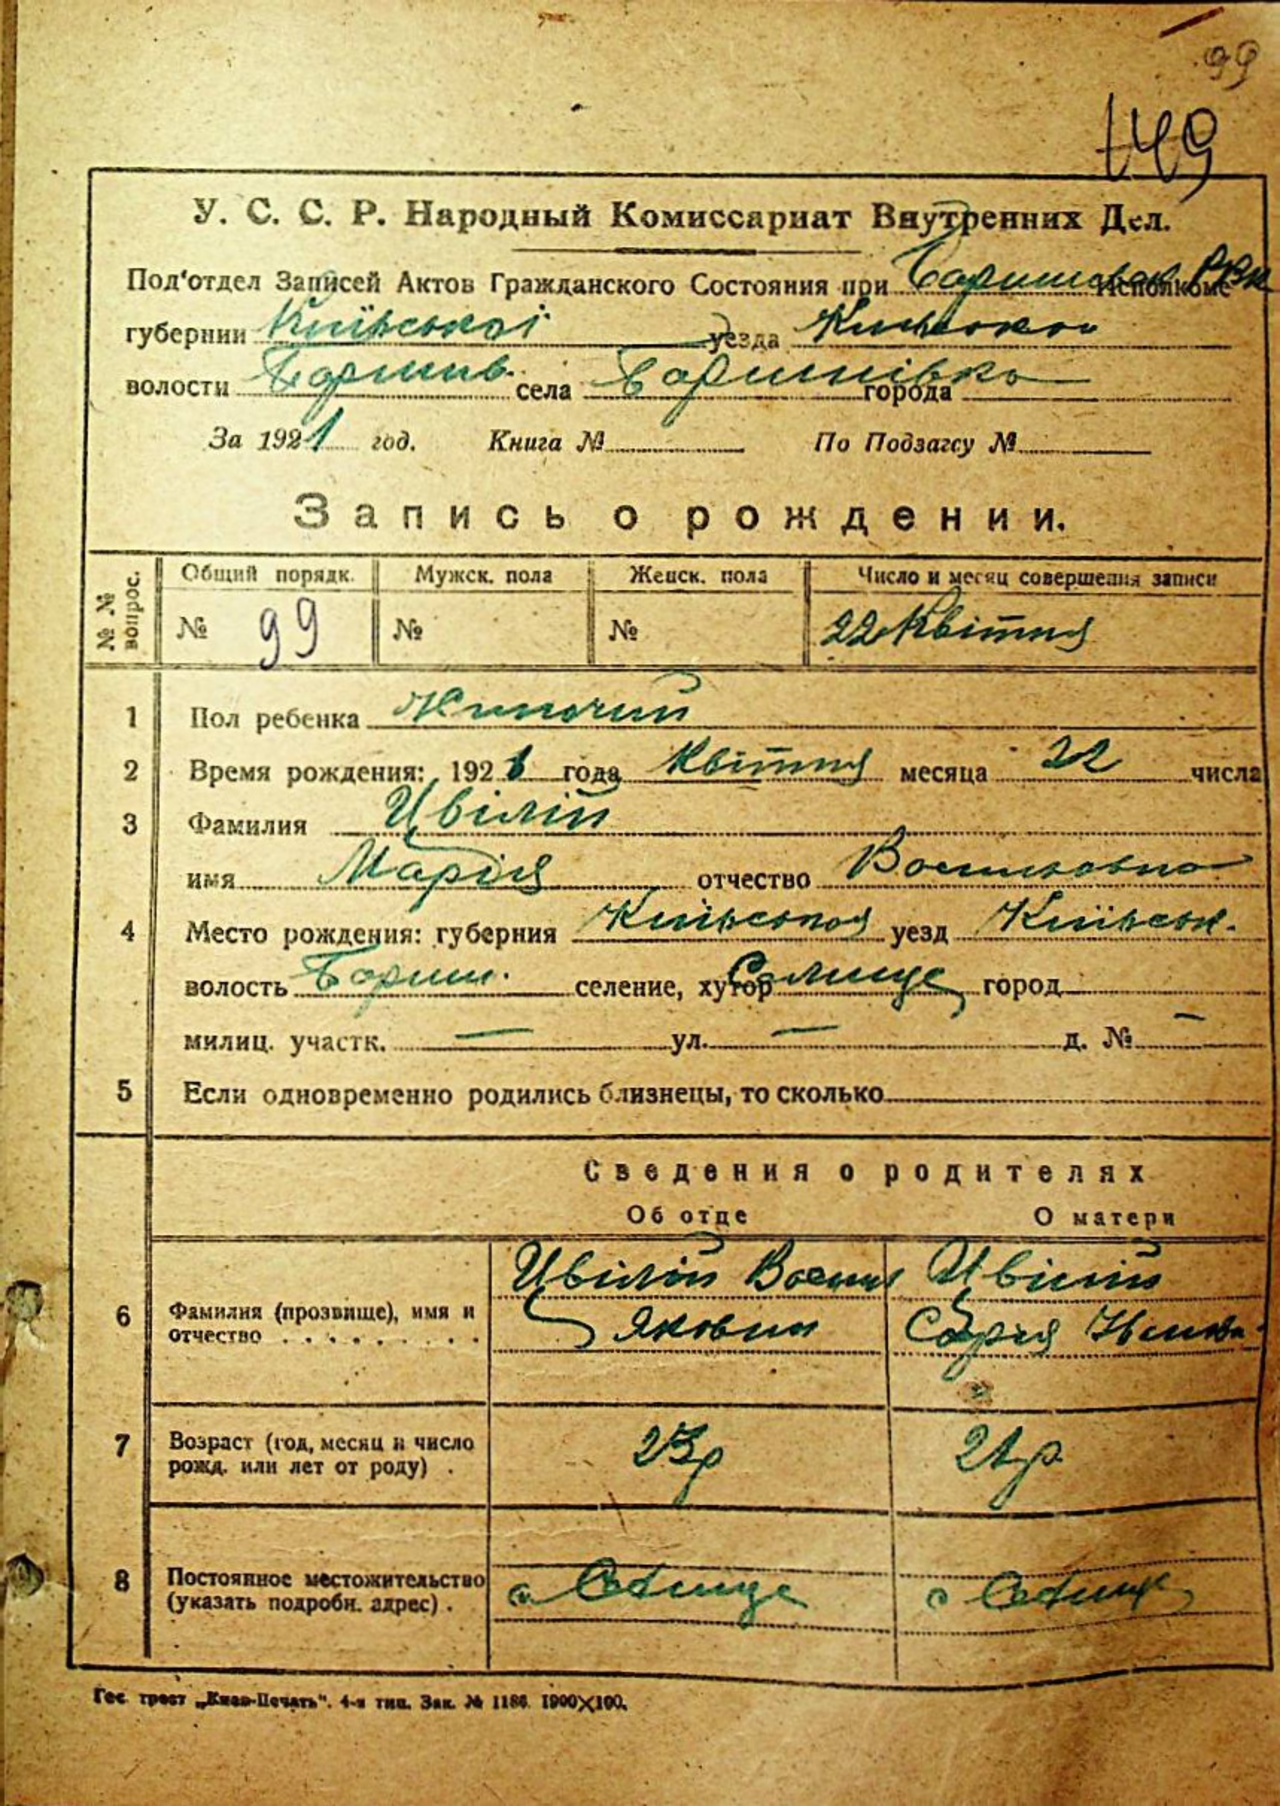 99
149
У. С. С. Р. Народный Комиссариат Внутренних Дел.
Под'отдел Записей Актов Гражданского Состояния при Исполкоме
губернии Київської уезда Київського
волости Баришів. села Баришівка города
За 1921 год. Книга № По Подзагсу №
Запись о рождении.
№ № вопрос. Общий порядк. Мужск. пола Женск. пола Число и месяц совершения записи
№ 99 № № 22 Квітня
1 Пол ребенка Жиночий
2 Время рождения: 1921 года Квітня месяца 22 числа
3 Фамилия Цвілій
имя Марія отчество Васильовна
4 Место рождения: губерния Київська уезд Київськ.
волость Бариш. селение, хутор Селище город
милиц. участк. — ул. — д. № —
5 Если одновременно родились близнецы, то сколько
Сведения о родителях
Об отце О матери
6 Фамилия (прозвище), имя и отчество . . . . . . . . .
Цвілій Васил Яковин
Цвілій Софія
7 Возраст (год, месяц и число рожд. или лет от роду) .
23р 21р
8 Постоянное местожительство (указать подробн. адрес) .
с Селище с Селище
Гос. трест „Киев-Печать". 4-я тип. Зак. № 1186. 1900×100.